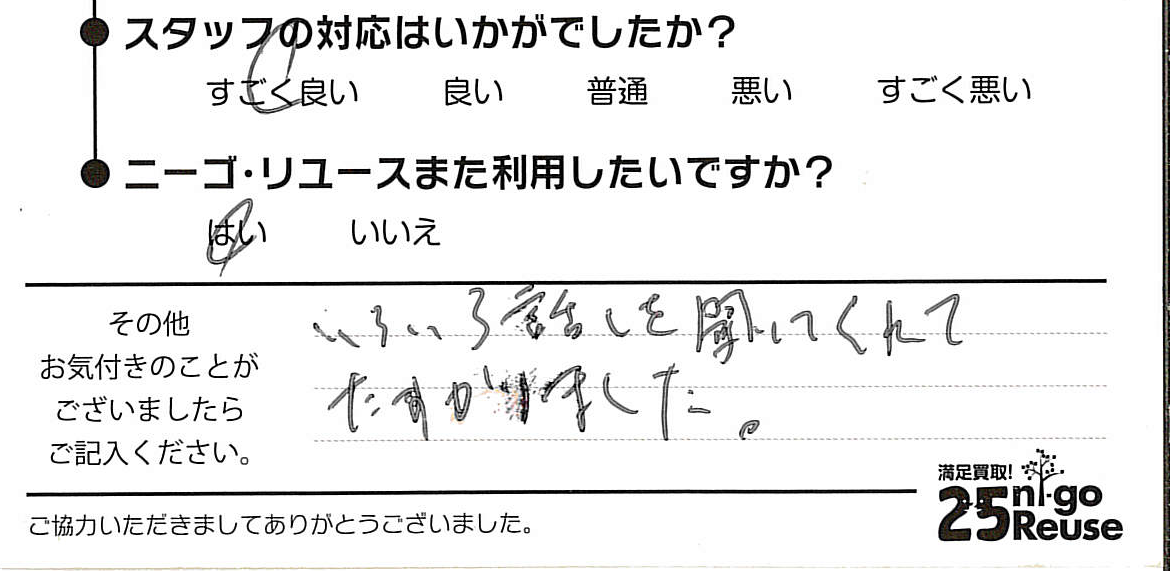 スタッフの対応はいかがでしたか？
すごく良い 良い 普通 悪い すごく悪い
ニーゴ・リユースまた利用したいですか？
はい いいえ
その他
お気付きのことが
ございましたら
ご記入ください。
いろいろ話しを聞いてくれて
たすかりました。
満足買取!
25 ni-go
Reuse
ご協力いただきましてありがとうございました。